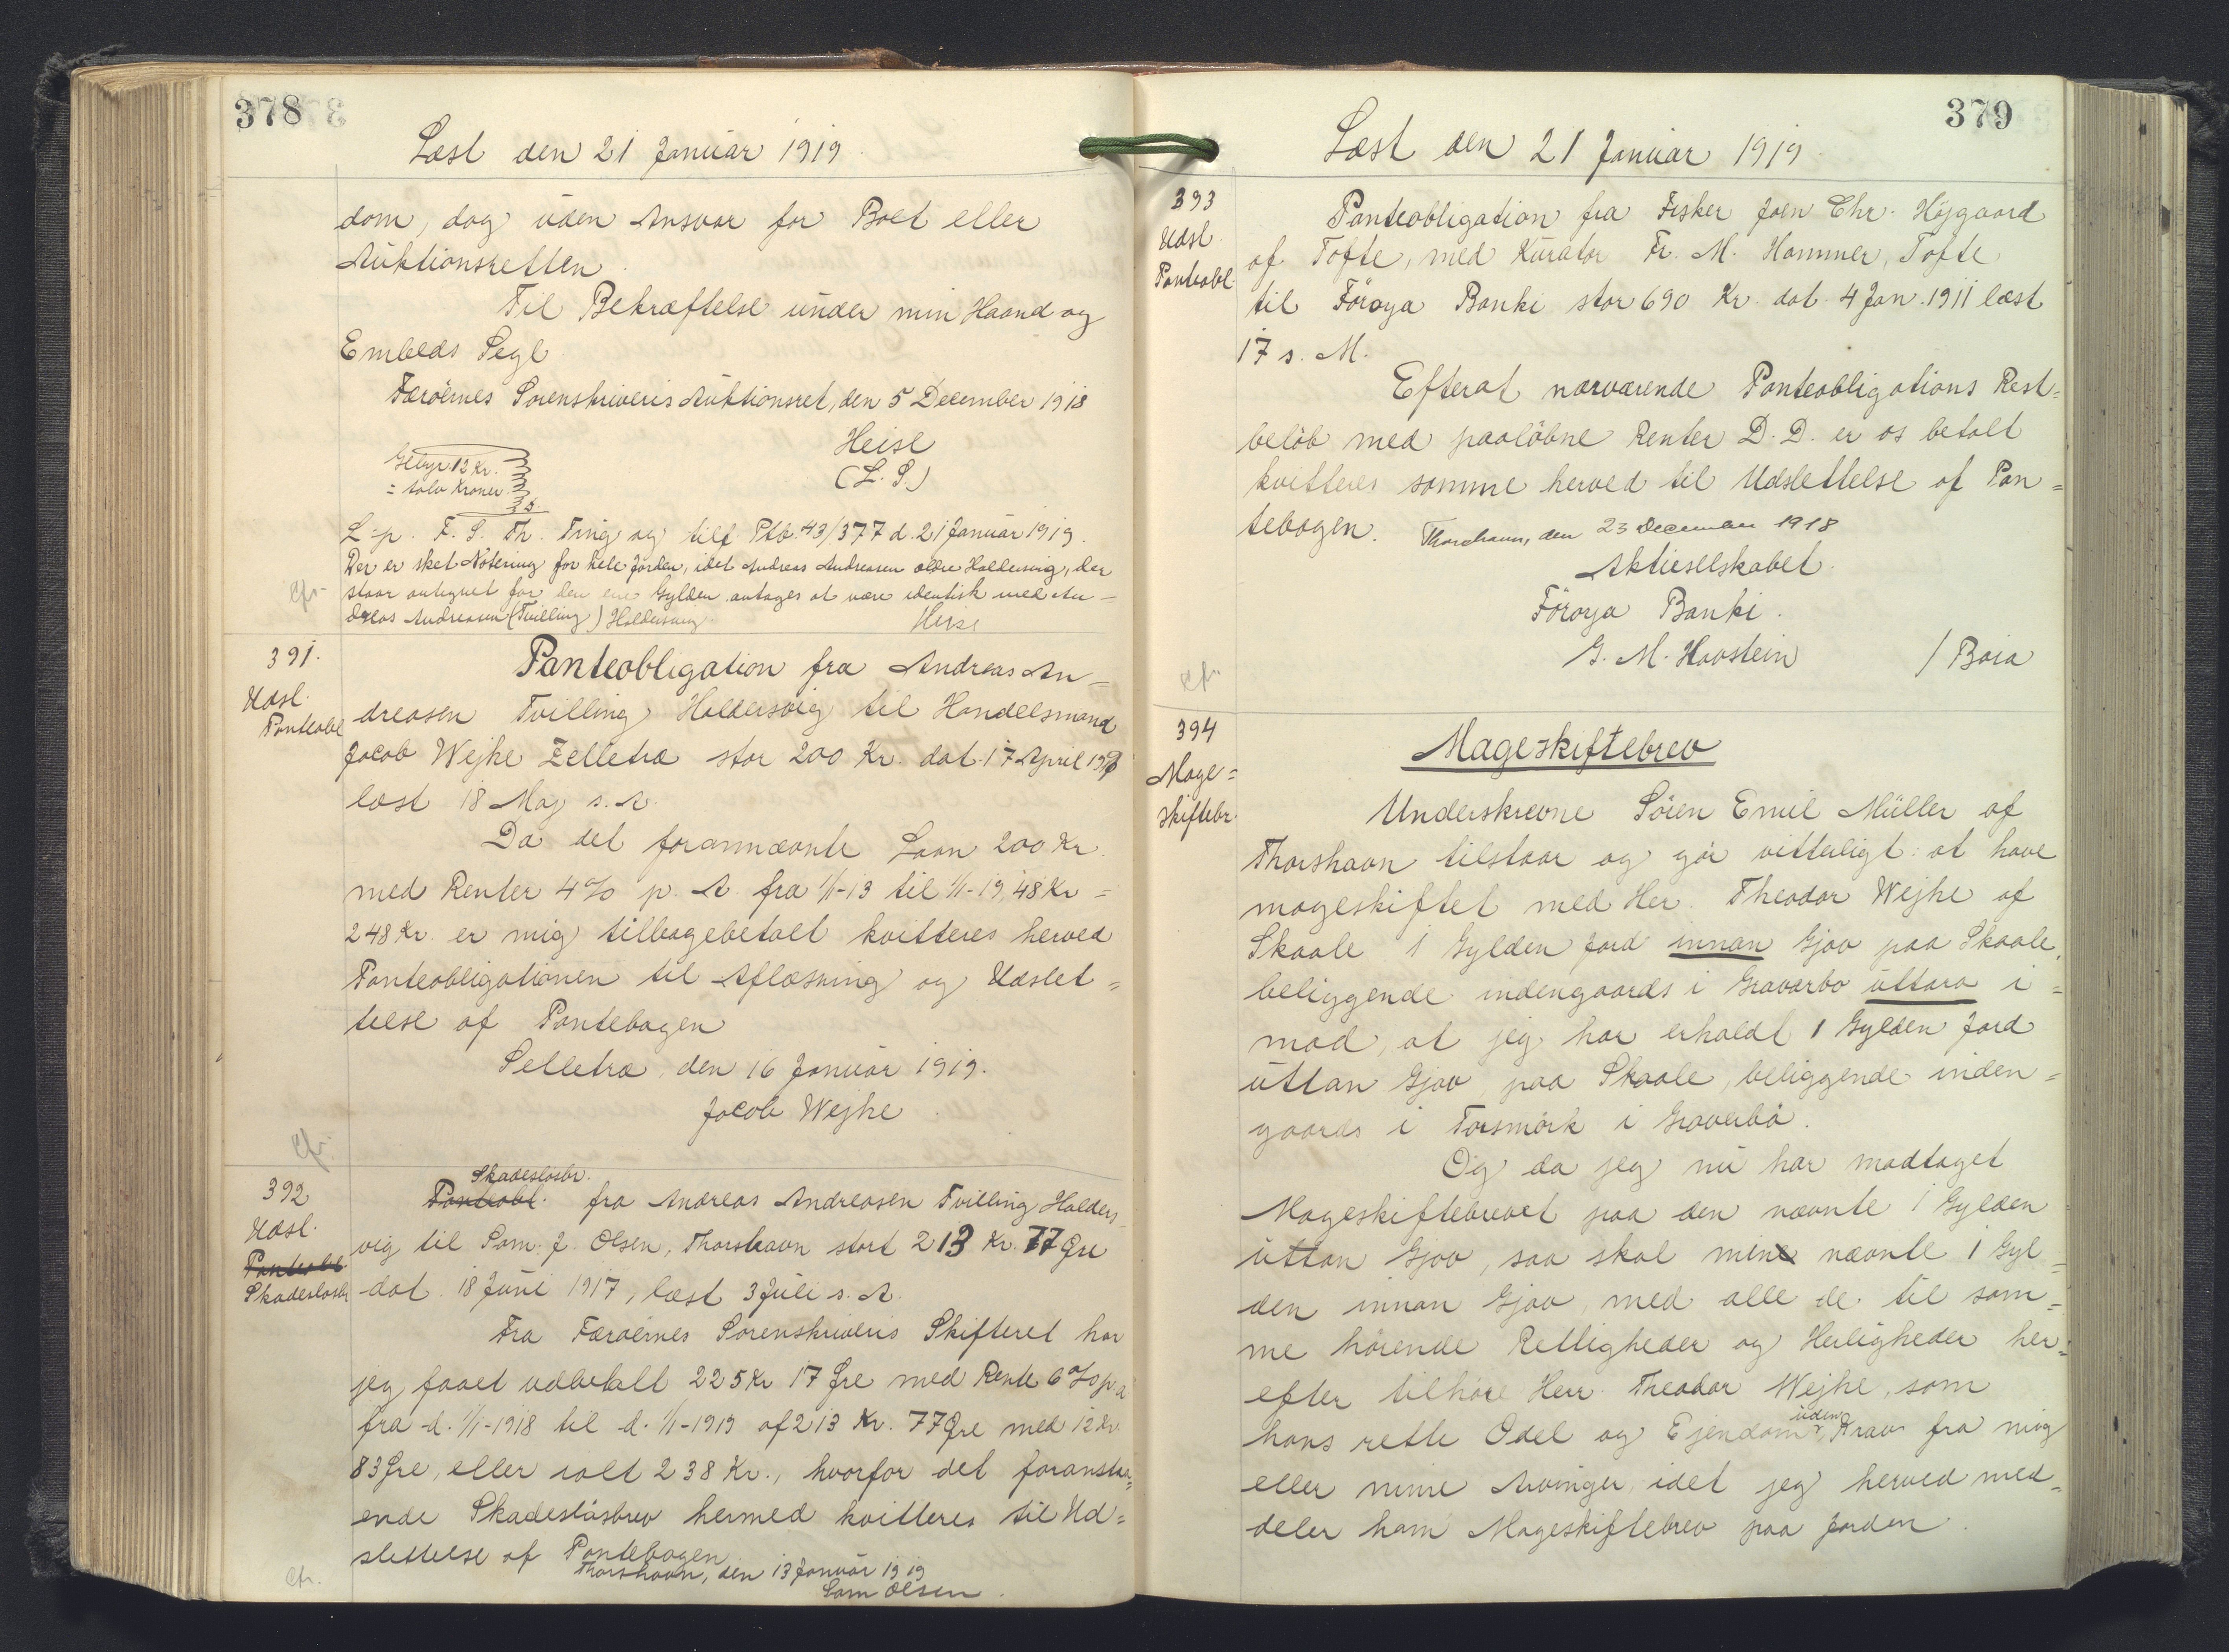 378
Læst den 21 Januar 1919.
dom, dog uden Ansvar for Boet eller
Auktionsretten.
Til Bekræftelse under min Haand og
Embeds Segl
Færöernes Sorenskriveris Auktionsret, den 5 December 1918
Heise
(L. S.)
Gebyr 12 Kr.
= tolv Kroner
L-p. F. S. Th. Ting og tilf Ptb. 43/377 d. 21 Januar 1919.
Der er sket Notering for hele Jorden, idet Andreas Andreasen ældre Haldersvig, der
staar antegnet for den ene Gylden antages at være identisk med An-
dreas Andreasen (Tvilling) Haldersvig. Heise
cfr.
391.
Udsl.
Panteobl
Panteobligation fra Andreas An=
dreasen Tvilling Haldersvig til Handelsmand
Jacob Wejhe Zelletræ stor 200 Kr. dat. 17 April
læst 18 Maj s. A.
Da det forannævnte Laan 200 Kr.
med Renter 4% p. A. fra 1/1-13 til 1/1-19, 48 Kr =
248 Kr. er mig tilbagebetalt kvitteres herved
Panteobligationen til Aflæsning og Udslet=
telse af Pantebogen
Selletræ, den 16 Januar 1919.
Jacob Wejhe.
cfr.
392
Udsl.
Panteobl.
Skadesløsbr
Skadesløsbr.
Panteobl. fra Andreas Andreasen Tvilling Halders-
vig til Sam. J. Olsen, Thorshavn stort 213 Kr. 77 Øre
dat. 18 Juni 1917, læst 3 Juli s. A.
Fra Færöernes Sorenskriveris Skifteret har
jeg faaet udbetalt 225 Kr 17 Øre med Rente 6% p a
fra d. 1/1-1918 til d. 1/1-1919 af 213 Kr. 77 Øre med 12 Kr.
83 Øre, eller ialt 238 Kr., hvorfor det foranstaa=
ende Skadesløsbrev hermed kvitteres til Ud=
slettelse af Pantebogen
Thorshavn, den 13 Januar 1919
Sam Olsen.
cfr.
379
Læst den 21 Januar 1919.
393
Udsl.
Panteobl.
Panteobligation fra Fisker Joen Chr. Højgaard
af Tofte, med Kurator Fr. M. Hammer, Tofte
til Föroya Banki stor 690 Kr. dat. 4 Jan. 1911 læst
17 s. M.
Efterat nærværende Panteobligations Rest=
beløb med paaløbne Renter D. D. er os betalt
kvitteres samme herved til Udslettelse af Pan=
tebogen. Thorshavn, den 23 December 1918
Aktieselskabet
Föroya Banki.
G. M. Havstein / Baia
cfr.
394
Mage=
skiftebr.
Mageskiftebrev
Underskrevne Sören Emil Müller af
Thorshavn tilstaar og gör vitterligt: at have
mageskiftet med Her. Theodor Wejhe af
Skaale 1 Gylden Jord innan Gjov paa Skaale,
beliggende indengaards i Gravarbo uttara i=
mod, at jeg har erholdt 1 Gylden Jord
uttan Gjov, paa Skaale, beliggende inden=
gaards i Torsmörk i Graverbø.
Og da jeg nu har modtaget
Mageskiftebrevet paa den nævnte 1 Gylden
uttan Gjov, saa skal min nævnte 1 Gyl=
den innan Gjov, med alle de til sam=
me hörende Rettigheder og Herligheder her=
efter tilhöre Herr. Theodor Wejhe, som
hans rette Odel og Ejendom uden Krav fra mig
eller mine Arvinger, idet jeg herved med=
deler ham Mageskiftebrev paa Jorden.